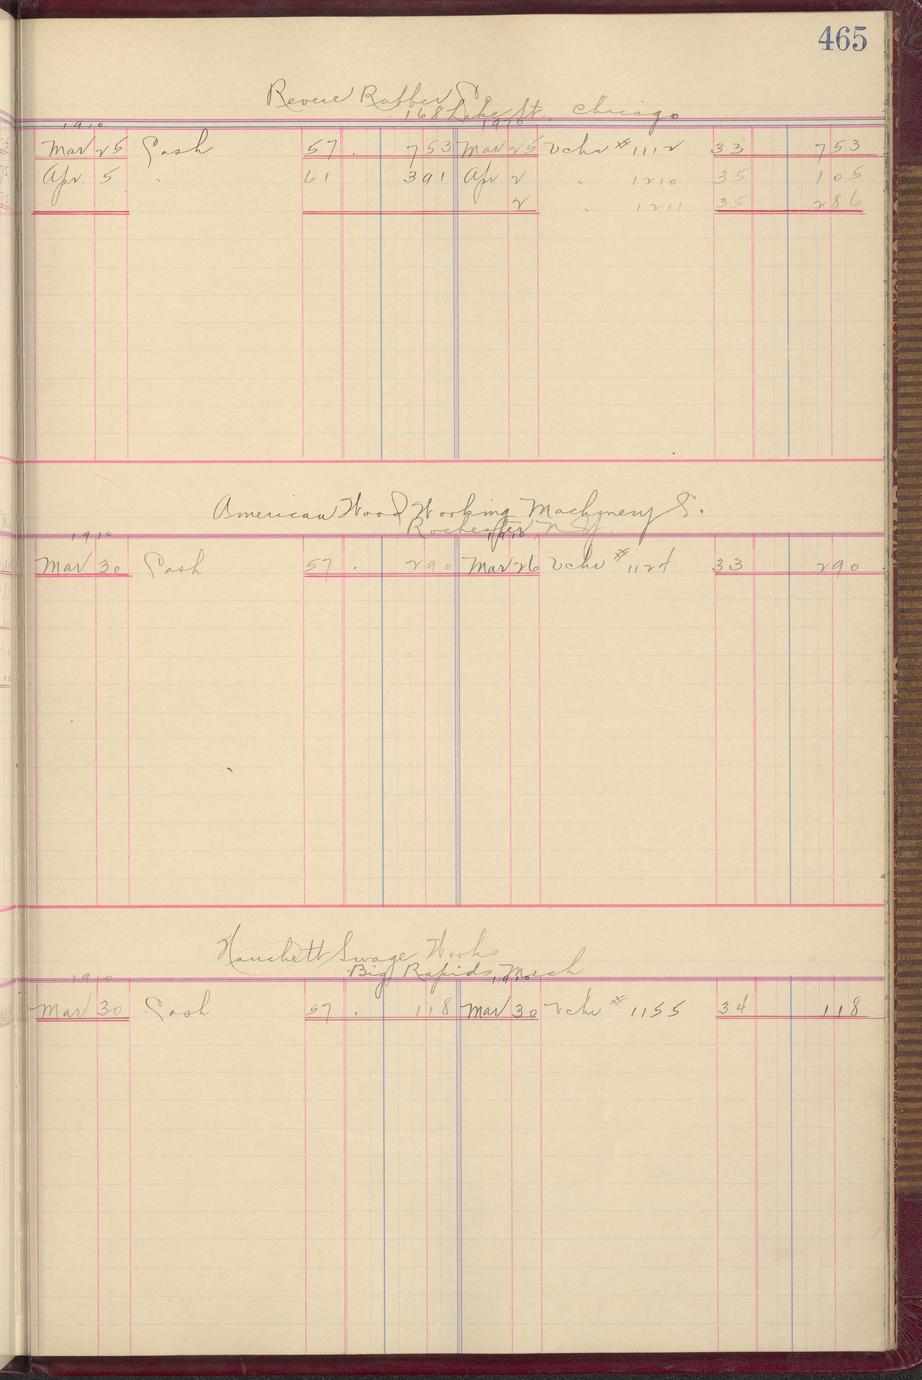 465
Revere Rubber Co.
168 Lake St., Chicago
1910 1910
Mar 25 Cash 57 . 753 Mar 25 Vchr # 1112 33 753
Apr. 5 " 61 391 Apr 2 " 1210 35 105
2 " 1211 35 286
American Wood Working Machinery Co.
Rochester, N.Y.
1910 1910
Mar 30 Cash 57 . 290 Mar 26 Vchr # 1124 33 290
Hanchett Swage Works
Big Rapids, Mich
1910 1910
Mar 30 Cash 57 . 118 Mar 30 Vchr # 1155 34 118